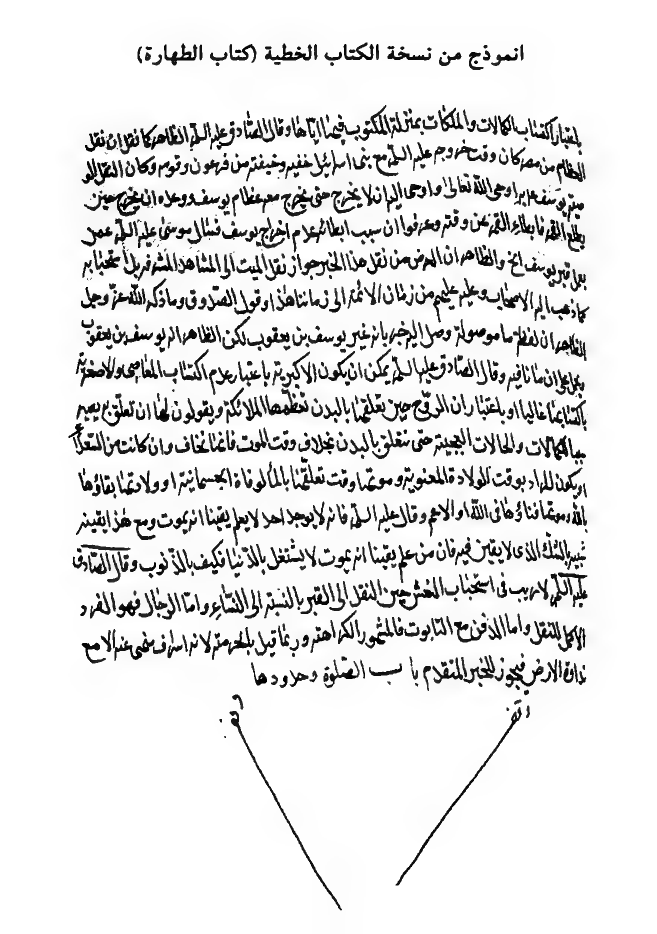 انموذج من نسخة الكتاب الخطية (كتاب الطهارة)
باعتبار اكتساب الكمالات والملكات بمنزلة المكتوب فيها اياها وقال الصادق عليه السلم الظاهر كما نقل ان نقل
العظام من مصر كان وقت خروجه عليه السلم مع بنى اسرائيل خفية وخيفته من فرعون وقومه وكان النقل
يوسف اوحى الله تعالى واوحى اليه ان لا يخرج حتى يخرج معه عظام يوسف ووعده ان يخرج حين
يطلع القمر فابطاء القمر عن وقته وعرفوا ان سبب ابطائه عدم اخراج يوسف فسال موسى عليه السلم عمن
يعلم قبر يوسف الخ والظاهر ان الغرض من نقل هذا الخبر جواز نقل الميت الى المشاهد المشرفة بل استحبابه
كما ذهب اليه الاصحاب وعليه عملهم من زمان الائمة الى زماننا هذا وقول الصدوق وما ذكره الله عز وجل
الظاهر ان لفظة ما موصولة وصل اليه خبر بانه غير يوسف بن يعقوب لكن الظاهر انه يوسف بن يعقوب
ان ما نافية وقال الصادق عليه السلم يمكن ان يكون الاكبرية باعتبار عدم اكتساب المعاصى
غالبا او باعتبار ان الروح حين تعلقها بالبدن تعظمها الملائكة ويقولون لها ان تعلق به يصير
الكمالات والحالات حتى تتعلق بالبدن بخلاف وقت الموت فانها تخاف وان كانت من
او يكون المراد بوقت الولادة المعنوية وموتها وقت تعلقها بالمألوفاة الجسمانية او ولادتها بقاؤها
بالله وموتها فناؤها فى الله او الاعم وقال عليه السلم فانه لا يوجد احد لا يعلم يقينا انه يموت ومع هذا يقينه
شبيه بالشك الذى لا يقين فيه فان من علم يقينا انه يموت لا يشتغل بالدنيا فكيف بالذنوب وقال الصادق
عليه السلم لا ريب فى استحباب النعش حين النقل الى القبر بالنسبة الى النساء واما الرجال فهو الفرد
الاكمل للنقل واما الدفن مع التابوت فالمشهور الكراهة وربما قيل بالحرمة لانه اسراف منهى عنه الا مع
نداوة الارض فيجوز للخبر المتقدم باب الصلوة وحدودها